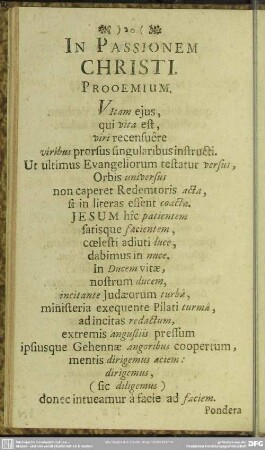 ) 20 (
IN PASSIONEM
CHRISTI.
PROOEMIUM.
VItam ejus,
qui vita est,
viri recensuêre
viribus prorsus singularibus instructi.
Ut ultimus Evangeliorum testatur versus,
Orbis universus
non caperet Redemtoris acta,
si in literas essent coacta.
JESUM hîc patientem
satisque facientem,
cœlesti adiuti luce,
dabimus in nuce.
In Ducem vitæ,
nostrum ducem,
incitante Judæorum turbâ,
ministeria exequente Pilati turmâ,
ad incitas redactum,
extremis angustiis pressum
ipsiusque Gehennæ angoribus coopertum,
mentis dirigemus aciem:
dirigemus,
(sic diligemus)
donec intueamur à facie ad faciem.
Pondera
DFG